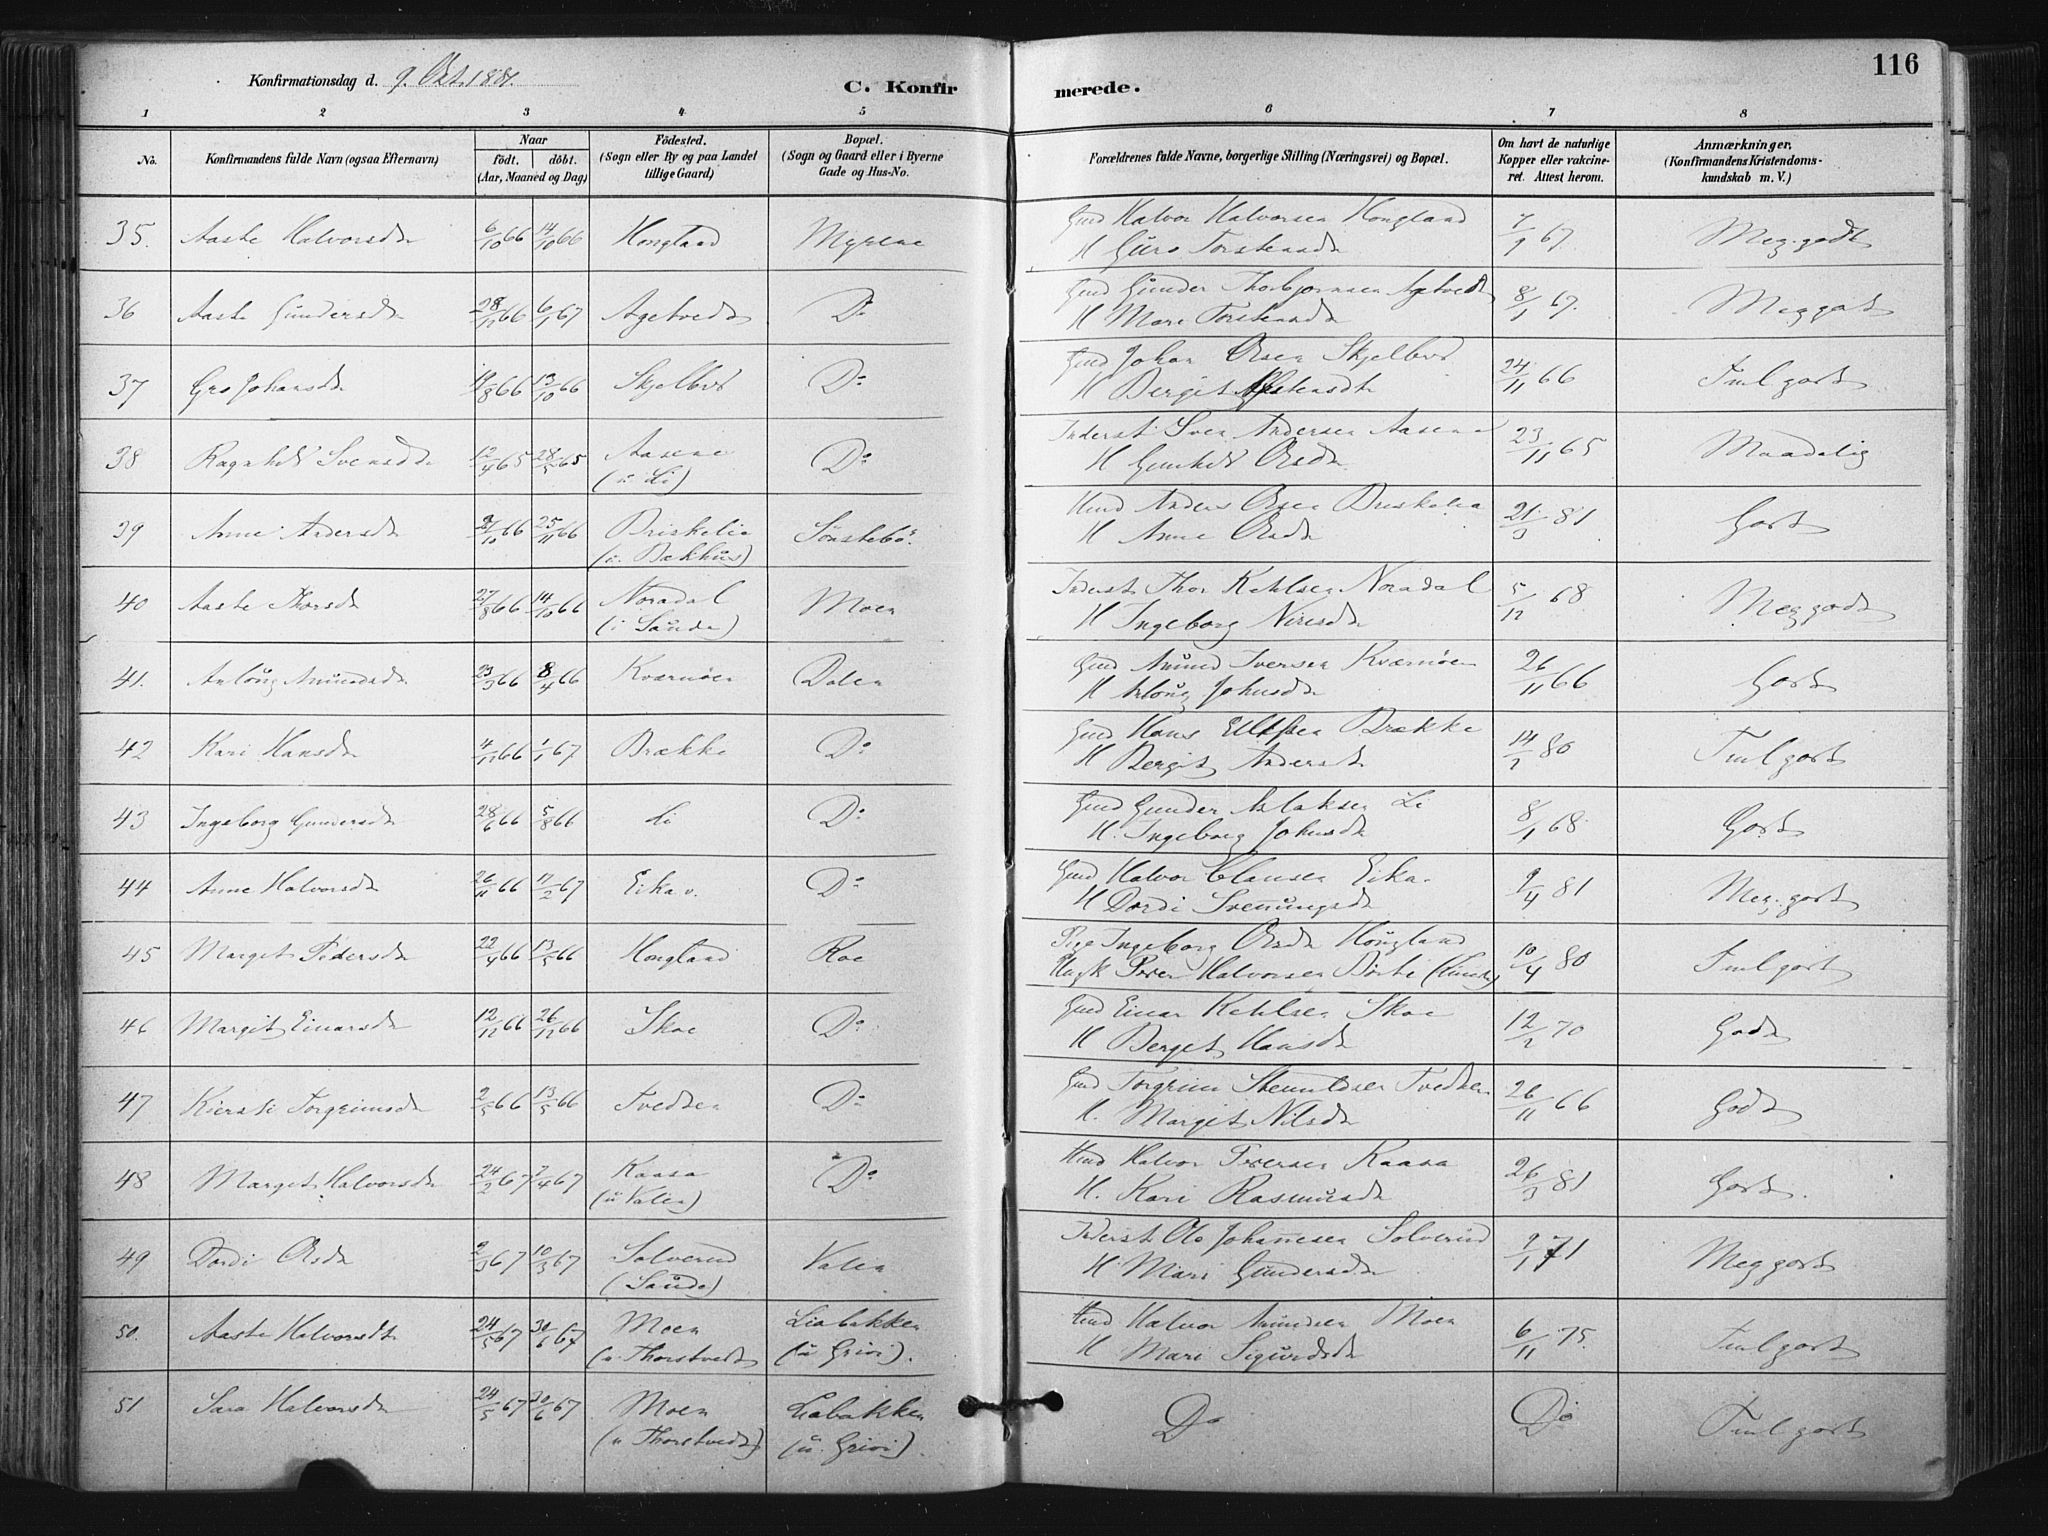 116
Konfirmationsdag d. 9. Okt. 1881.
C. Konfirmerede.
1 2 3 4 5 6 7 8
No. Konfirmandens fulde Navn (ogsaa Efternavn) Naar født. døbt. (Aar, Maaned og Dag) Fødested. (Sogn eller By og paa Landet tillige Gaard) Bopæl. (Sogn og Gaard eller i Byerne Gade og Hus-No. Forældrenes fulde Navne, borgerlige Stilling (Næringsvei) og Bopæl. Om havt de naturlige Kopper eller vakcineret. Attest herom. Anmærkninger. (Konfirmandens Kristendomskundskab m. V.)
35. Aaste Halvorsdr 6/10 66 14/10 66 Hougland Myrene Gmd Halvor Halvorsen Hougland 7/9 67. Meg. godt
H Guro Torstensdr
36 Aaste Gundersdr 28/12 66 6/1 67 Agetvedt Do Gmd Gunder Thorbjørnsen Agetvedt 8/1 67. Meg got
H Mari Torstensdr
37 Gro Johansdr 14/8 66 13/10 66 Skjelbred Do Gmd Johan Olsen Skjelbred 24/11 66 Tml godt
H Bergit
38 Ragnhild Svensdr 12/4 65 28/5 65 Aasene Do Inderst Sven Andersen Aasene 23/11 65 Maadelig
(u Li) H Gunhild Olsdr
39 Anne Andersdr 25/11 66 Briskelia Sønstebø. Hmd Anders Olsen Briskelia 21/3 81 Godt
(u. Bakhus) H Anne Olsdr
40 Aaste Thorsdr 27/8 66 14/10 66 Noradal Moen Inderst Thor Kehlsen Noradal 5/12 68 Meg godt
(i Saude) H Ingeborg Nirisdr
41. Anlaug Amundsdr 23/3 66 8/4 66 Kværnøen Dalen Gmd Amund Iversen Kværnøen 26/11 66 Godt
H Aslaug Johnsdr
42 Kari Hansdr 4/12 66 1/1 67 Brække Do Gmd Hans Ellefsen Brække 14/2 80 Tml godt
H Bergit Andersdt
43 Ingeborg Gundersdr 28/6 66 5/8 66 Li Do Gmd Gunder Aslaksen Li 8/1 68. Godt
H. Ingeborg Johnsdr
44 Anne Halvorsdr 26/11 66 17/2 67 Eika v. Do Gmd Halvor Clausen Eika. 9/4 81 Meg. godt
H Dordi Svenungsdr
45 Marget Pedersdr 22/4 66 13/5 66 Hougland Roe Pige Ingeborg Olsdr Hougland 10/4 80 Tml godt
Ungk Peder Halvorsen Børte
46 Margit Einarsdr 12/12 66 26/12 66 Skoe Do Gmd Einar Kehlsen Skoe 12/2 70 Godt
H Berget Hansdr
47 Kiersti Torgrimsdr 2/5 66 13/5 66 Tvedten Do Gmd Torgrim Tvedten 26/11 66 Godt
H. Marget Nilsdr
48 Marget Halvorsdr 24/2 67 7/4 67 Kaasa Do Hmd Halvor Pedersen Kaasa 26/3 81 Godt.
(u Valen) H. Kari Rasmusdr
49 Dordi Olsdr 2/3 67 10/3 67 Solverud Valen Inderst Ole Johannesen Solverud 9/1 71 Meg godt
(Saude) H Mari Gundersdr
50. Aaste Halvorsdt 24/5 67 30/6 67 Moen Liabakken Hmd Halvor Amundsen Moen 6/11 75. Tml godt
(u. Thorstvedt (u Grivi). H Mari Sigurdsdr
51 Sara Halvorsdr 24/5 67 30/6 67 Moen Liabakken Do Do Tml godt
(u Thorstvedt) (u. Grivi).